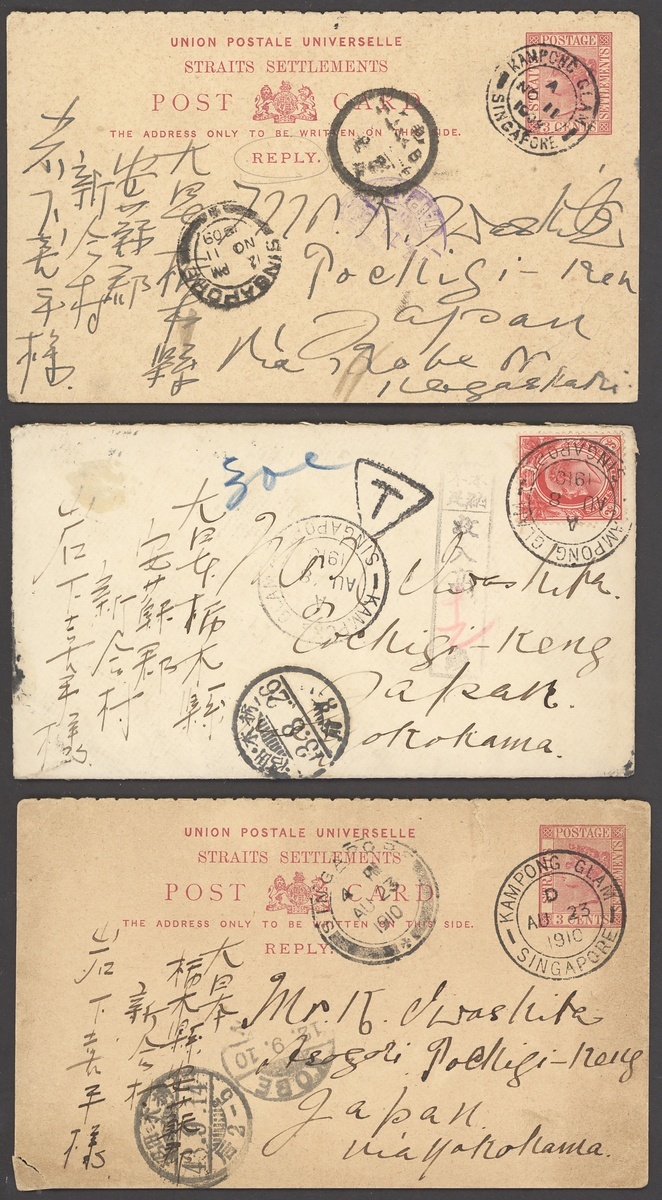 UNION POSTALE UNIVERSELLE
STRAITS SETTLEMENTS
POST CARD
THE ADDRESS ONLY TO BE WRITTEN ON THIS SIDE.
REPLY.
POSTAGE
3 CENTS
KAMPONG GLAM
A
NO 11
SINGAPORE
SINGAPORE
12 PM
NO 11
1909
大日本栃木縣
安蘇郡
新合村
岩下喜平様
Mr. K. Iwashita
Tochigi-Ken
Japan
Via Kobe or
Nagasaki.
30c
T
KAMPONG GLAM
A
AU 8
1910
SINGAPORE
KAMPONG GLAM
A
AU 8
1910
SINGAPORE
大日本栃木縣
安蘇郡
新合村
岩下喜平様
Mr. K. Iwashita.
Tochigi-Keng
Japan.
Yokokama.
43.8.26
UNION POSTALE UNIVERSELLE
STRAITS SETTLEMENTS
POST CARD
THE ADDRESS ONLY TO BE WRITTEN ON THIS SIDE.
REPLY.
POSTAGE
3 CENTS
SINGAPORE
AU 23
1910
KAMPONG GLAM
D
AU 23
1910
SINGAPORE
大日本
栃木縣安蘇郡
新合村
岩下喜平様
Mr. K. Iwashita
Asogori Tochigi-Keng
Japan.
via Yokokama.
12.9.10
KOBE
43.9.14